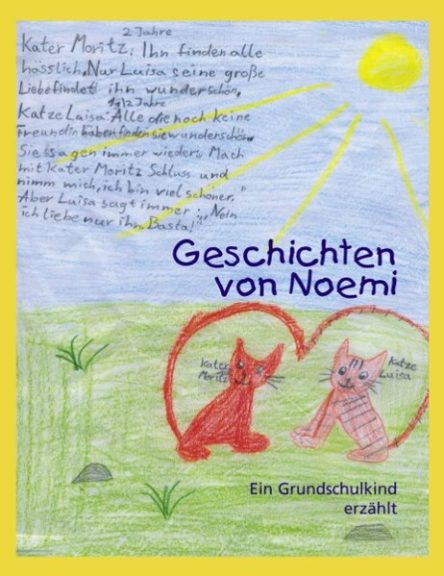 2 Jahre
Kater Moritz: Ihn finden alle
hässlich. Nur Luisa seine große
Liebe findet ihn wunderschön.
1 1/2 Jahre
Katze Luisa: Alle die noch keine
Freundin haben finden sie wunderschön.
Sie sagen immer wieder: „Mach
mit Kater Moritz Schluss und
nimm mich, ich bin viel schöner."
Aber Luisa sagt immer: „Nein
ich liebe nur ihn. Basta!"
Geschichten
von Noemi
Kater
Moritz
Katze
Luisa
Ein Grundschulkind
erzählt